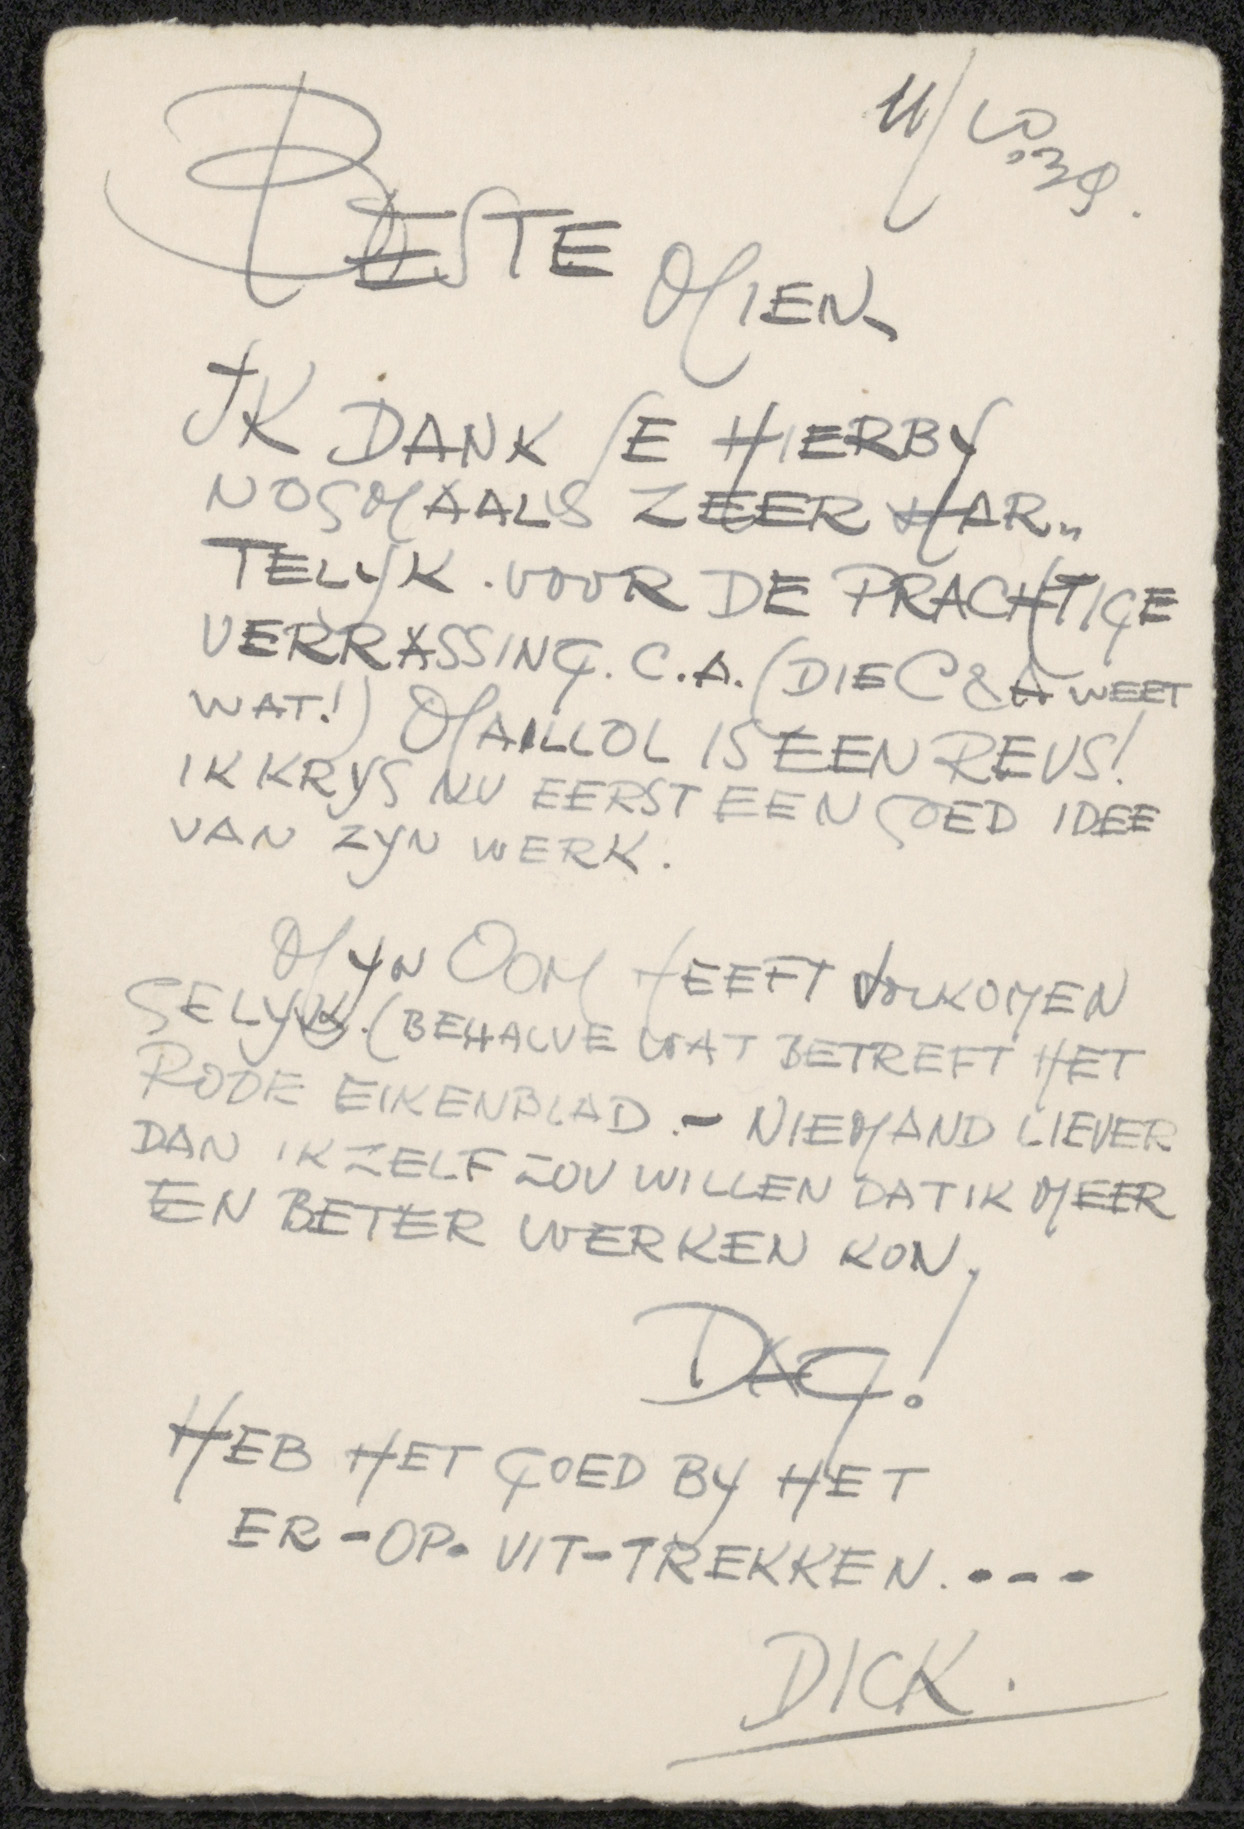 11/10.39.
BESTE MIEN,
IK DANK JE HIERBY
NOGMAALS ZEER HAR„
TELYK. VOOR DE PRACHTIGE
VERRASSING. C.A. (DIE C & A WEET
WAT!) MAILLOL IS EEN REUS!
IK KRYG NU EERST EEN GOED IDEE
VAN ZYN WERK.
MYN OOM HEEFT VOLKOMEN
GELYK. (BEHALVE WAT BETREFT HET
RODE EIKENBLAD. - NIEMAND LIEVER
DAN IKZELF ZOU WILLEN DAT IK MEER
EN BETER WERKEN KON.
DAG!
HEB HET GOED BY HET
ER-OP-UIT-TREKKEN. - - -
DICK.